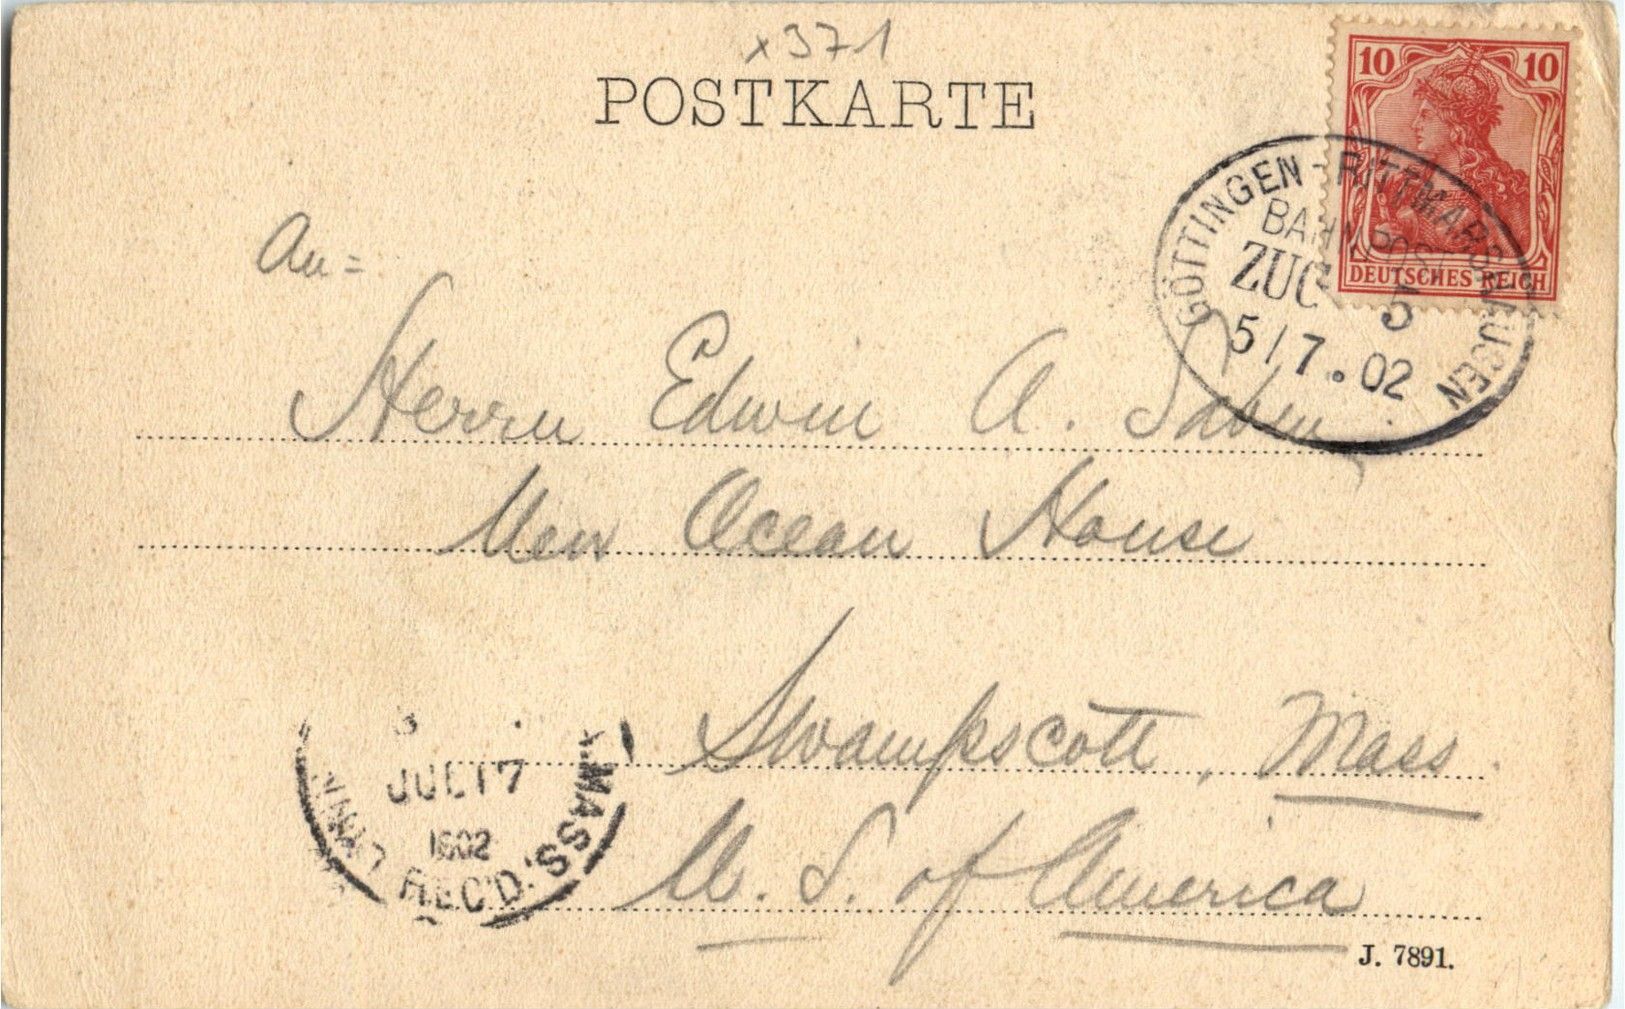 x371
POSTKARTE
10 10
DEUTSCHES REICH
GÖTTINGEN - RITTMARSHAUSEN
BAHNPOST
ZUG 5
5/7.02
An =
Herrn Edwin A.
New Ocean House
Swampscott, Mass.
U. S. of America
JUL 17
1902
LYNN, MASS.
REC'D.
J. 7891.